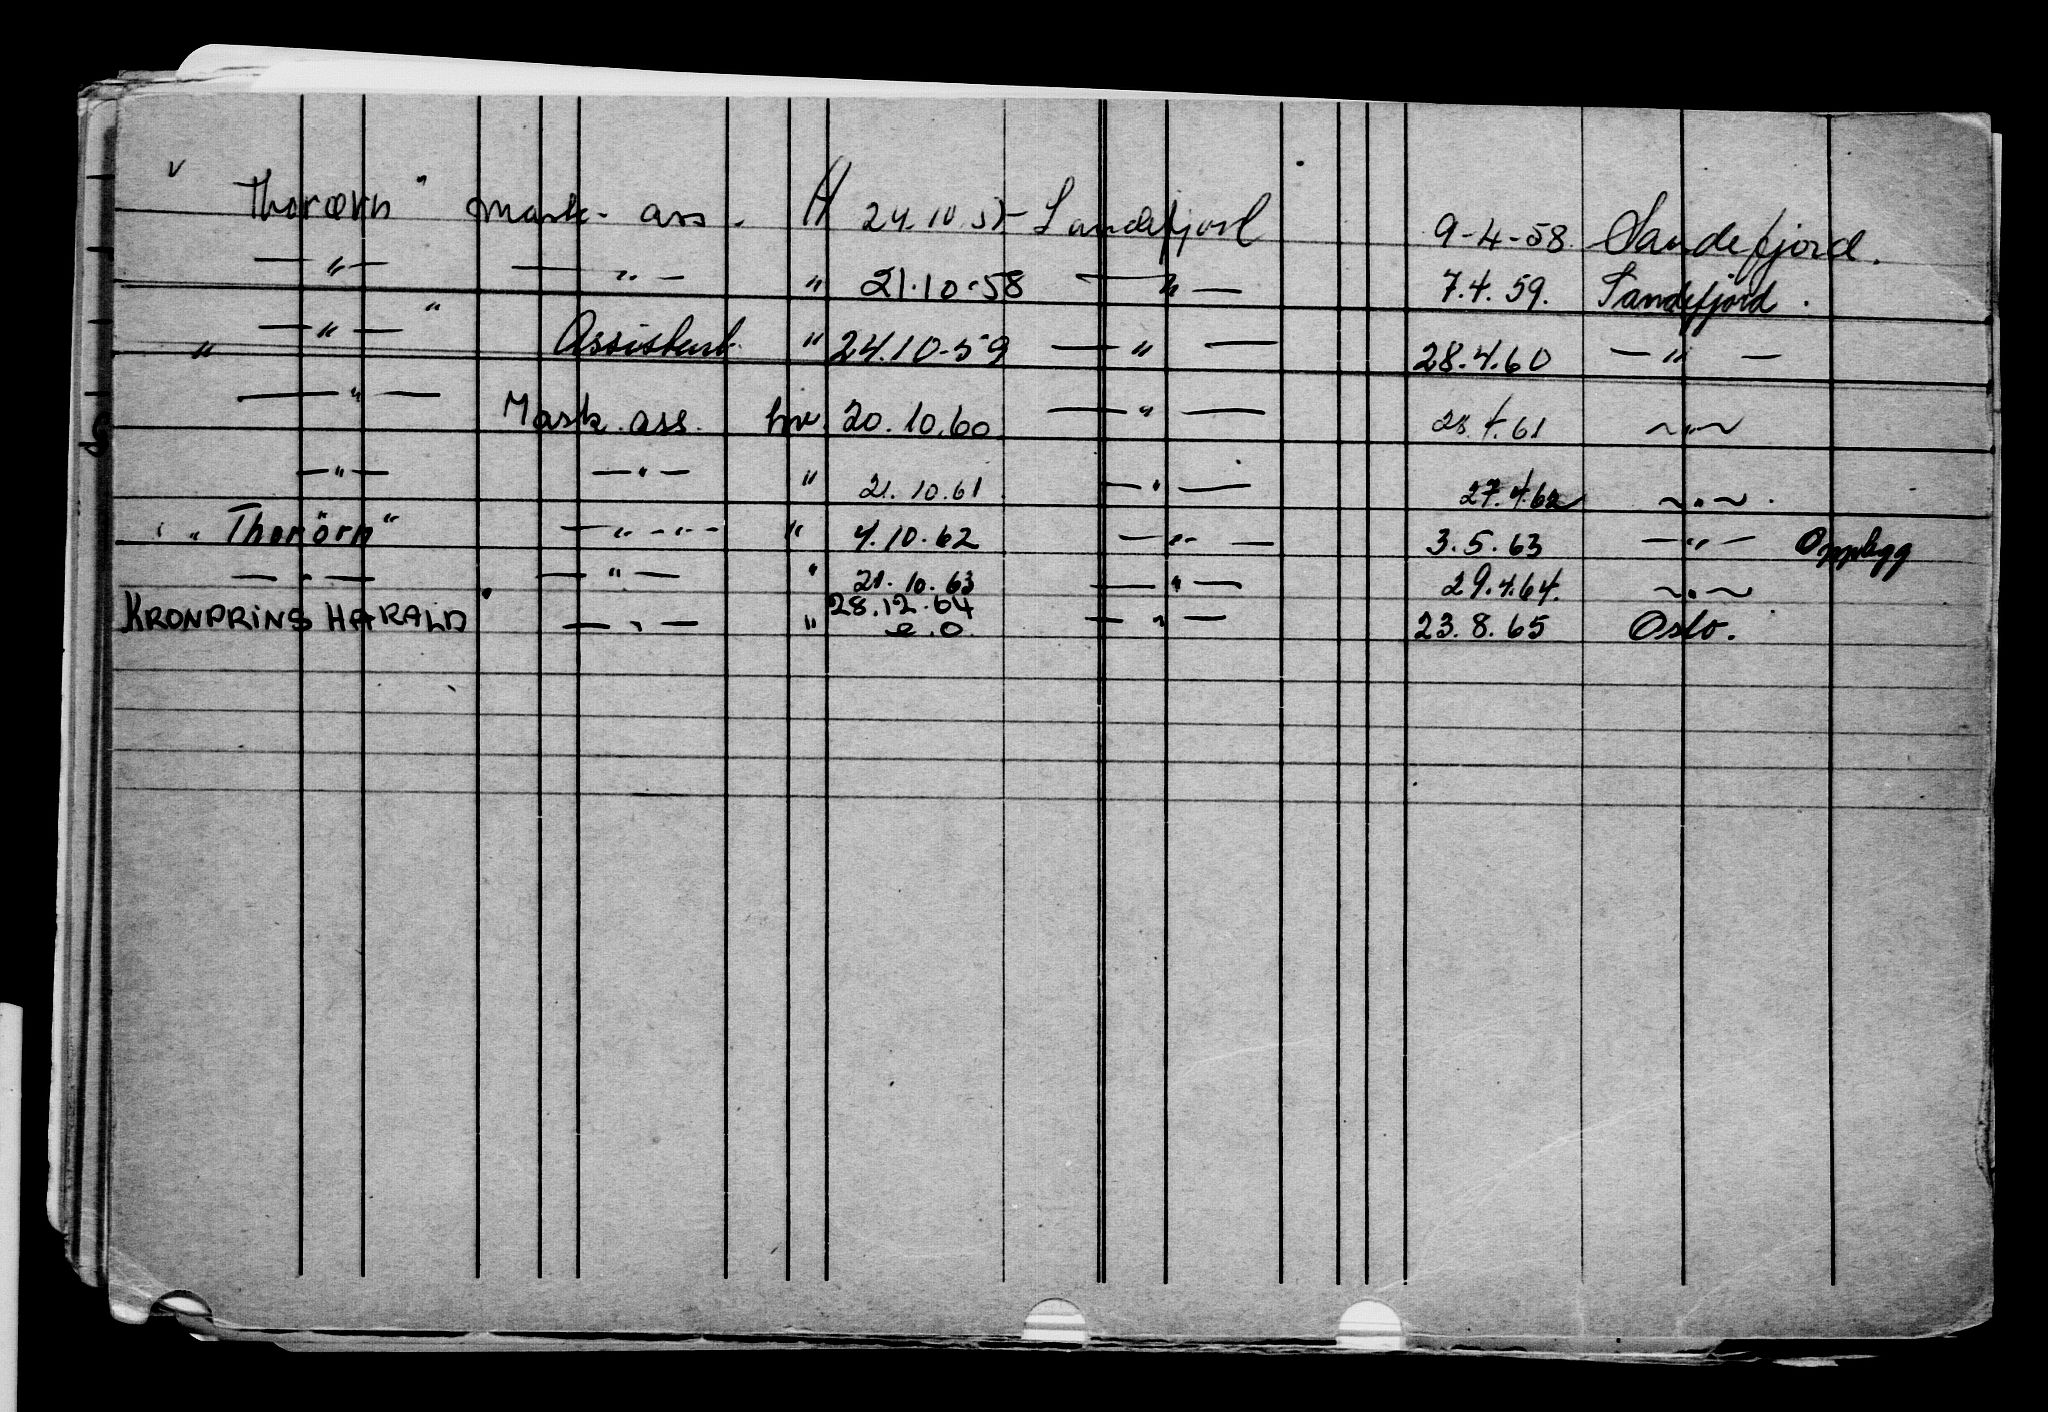 "Thorørn" mask. ass. H 24.10.57 Sandefjord 9-4-58 Sandefjord.
—"— —"— " 21.10-58 —"— 7.4.59. Sandefjord.
—"— Assistent " 24.10-59 —"— 28.4.60 —"—
—"— Mask. ass. hv 20.10.60 —"— 28.4.61 ~"~
—"— —"— " 21.10.61 —"— 27.4.62 ~"~.
"Thorörn" —"—"— " 4.10.62 —"— 3.5.63 —"— Opplegg
—"— —"— " 21.10.63 —"— 29.4.64. ~"~
KRONPRINS HARALD —"— " 28.12.64 —"— 23.8.65 Oslo.
e.o.